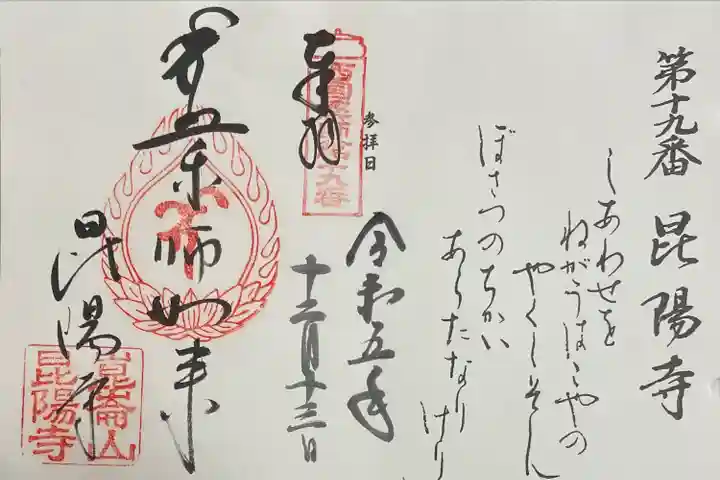 第十九番 昆陽寺
しあわせを
ねがうはゝやの
やくしそん
ぼさつのちかい
あらたなり
けり
奉拝
西国薬師第十九番
参拝日
令和五年
十二月十三日
薬師如来
昆陽寺
崑崙山
昆陽寺